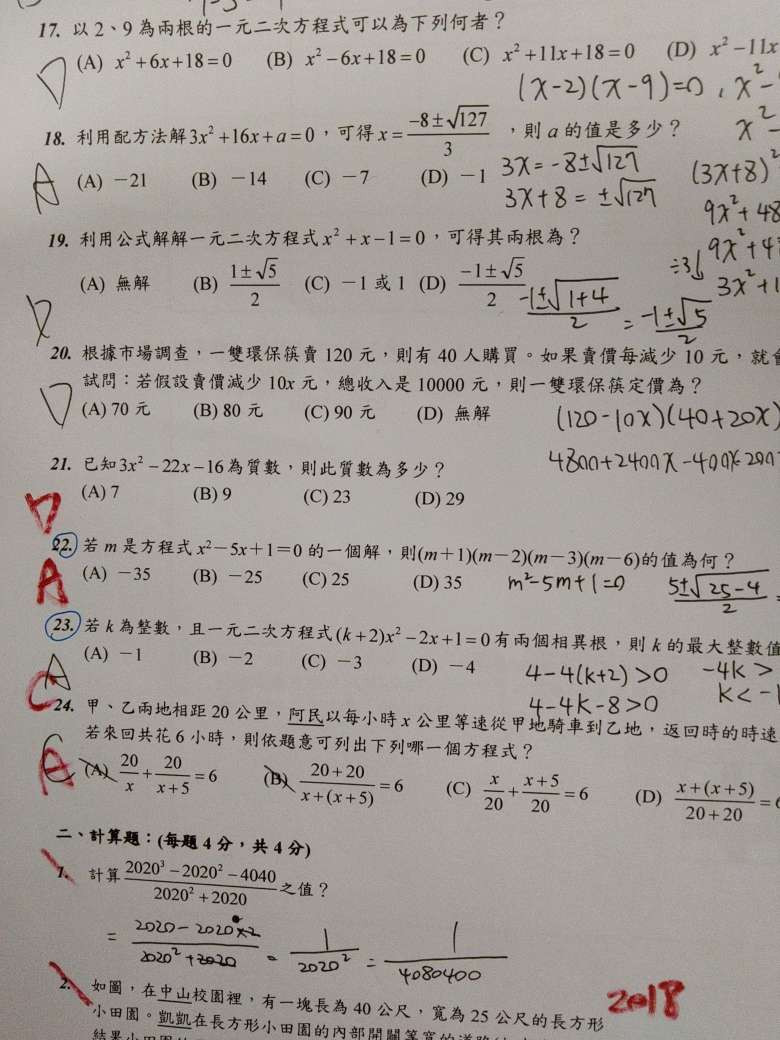 17. 以 2、9 為兩根的一元二次方程式可以為下列何者？
(A) x²+6x+18=0 (B) x²−6x+18=0 (C) x²+11x+18=0 (D) x²−11x
D
(x-2)(x-9)=0 , x²-
x²-
18. 利用配方法解3x²+16x+a=0，可得x=(−8±√127)/3，則 a 的值是多少？
A
(A) −21 (B) −14 (C) −7 (D) −1
3x=-8±√127
3x+8=±√127
(3x+8)²
9x²+48
9x²+4
÷3↓
3x²+1
19. 利用公式解解一元二次方程式x²+x−1=0，可得其兩根為？
(A) 無解 (B) (1±√5)/2 (C) −1 或 1 (D) (−1±√5)/2
D
(-1±√(1+4))/2 = (-1±√5)/2
20. 根據市場調查，一雙環保筷賣 120 元，則有 40 人購買。如果賣價每減少 10 元，就會
試問：若假設賣價減少 10x 元，總收入是 10000 元，則一雙環保筷定價為？
D
(A) 70 元 (B) 80 元 (C) 90 元 (D) 無解
(120-10x)(40+20x)
4800+2400x-400x-200
21. 已知3x²−22x−16為質數，則此質數為多少？
(A) 7 (B) 9 (C) 23 (D) 29
D
22. 若 m 是方程式 x²−5x+1=0 的一個解，則(m+1)(m−2)(m−3)(m−6)的值為何？
A
(A) −35 (B) −25 (C) 25 (D) 35
m²-5m+1=0
(5±√(25-4))/2 =
23. 若 k 為整數，且一元二次方程式(k+2)x²−2x+1=0有兩個相異根，則 k 的最大整數值
A
C
(A) −1 (B) −2 (C) −3 (D) −4
4-4(k+2)>0
4-4k-8>0
-4k>
k<-1
24. 甲、乙兩地相距 20 公里，阿民以每小時 x 公里等速從甲地騎車到乙地，返回時的時速
若來回共花 6 小時，則依題意可列出下列哪一個方程式？
C
A
(A) 20/x+20/(x+5)=6 (B) (20+20)/(x+(x+5))=6 (C) x/20+(x+5)/20=6 (D) (x+(x+5))/(20+20)=6
二、計算題：(每題 4 分，共 4 分)
1. 計算(2020³−2020²−4040)/(2020²+2020)之值？
= 1/2020² = 1/4080400
2018
2. 如圖，在中山校園裡，有一塊長為 40 公尺，寬為 25 公尺的長方形
小田園。凱凱在長方形小田園的內部開闢等寬的道路